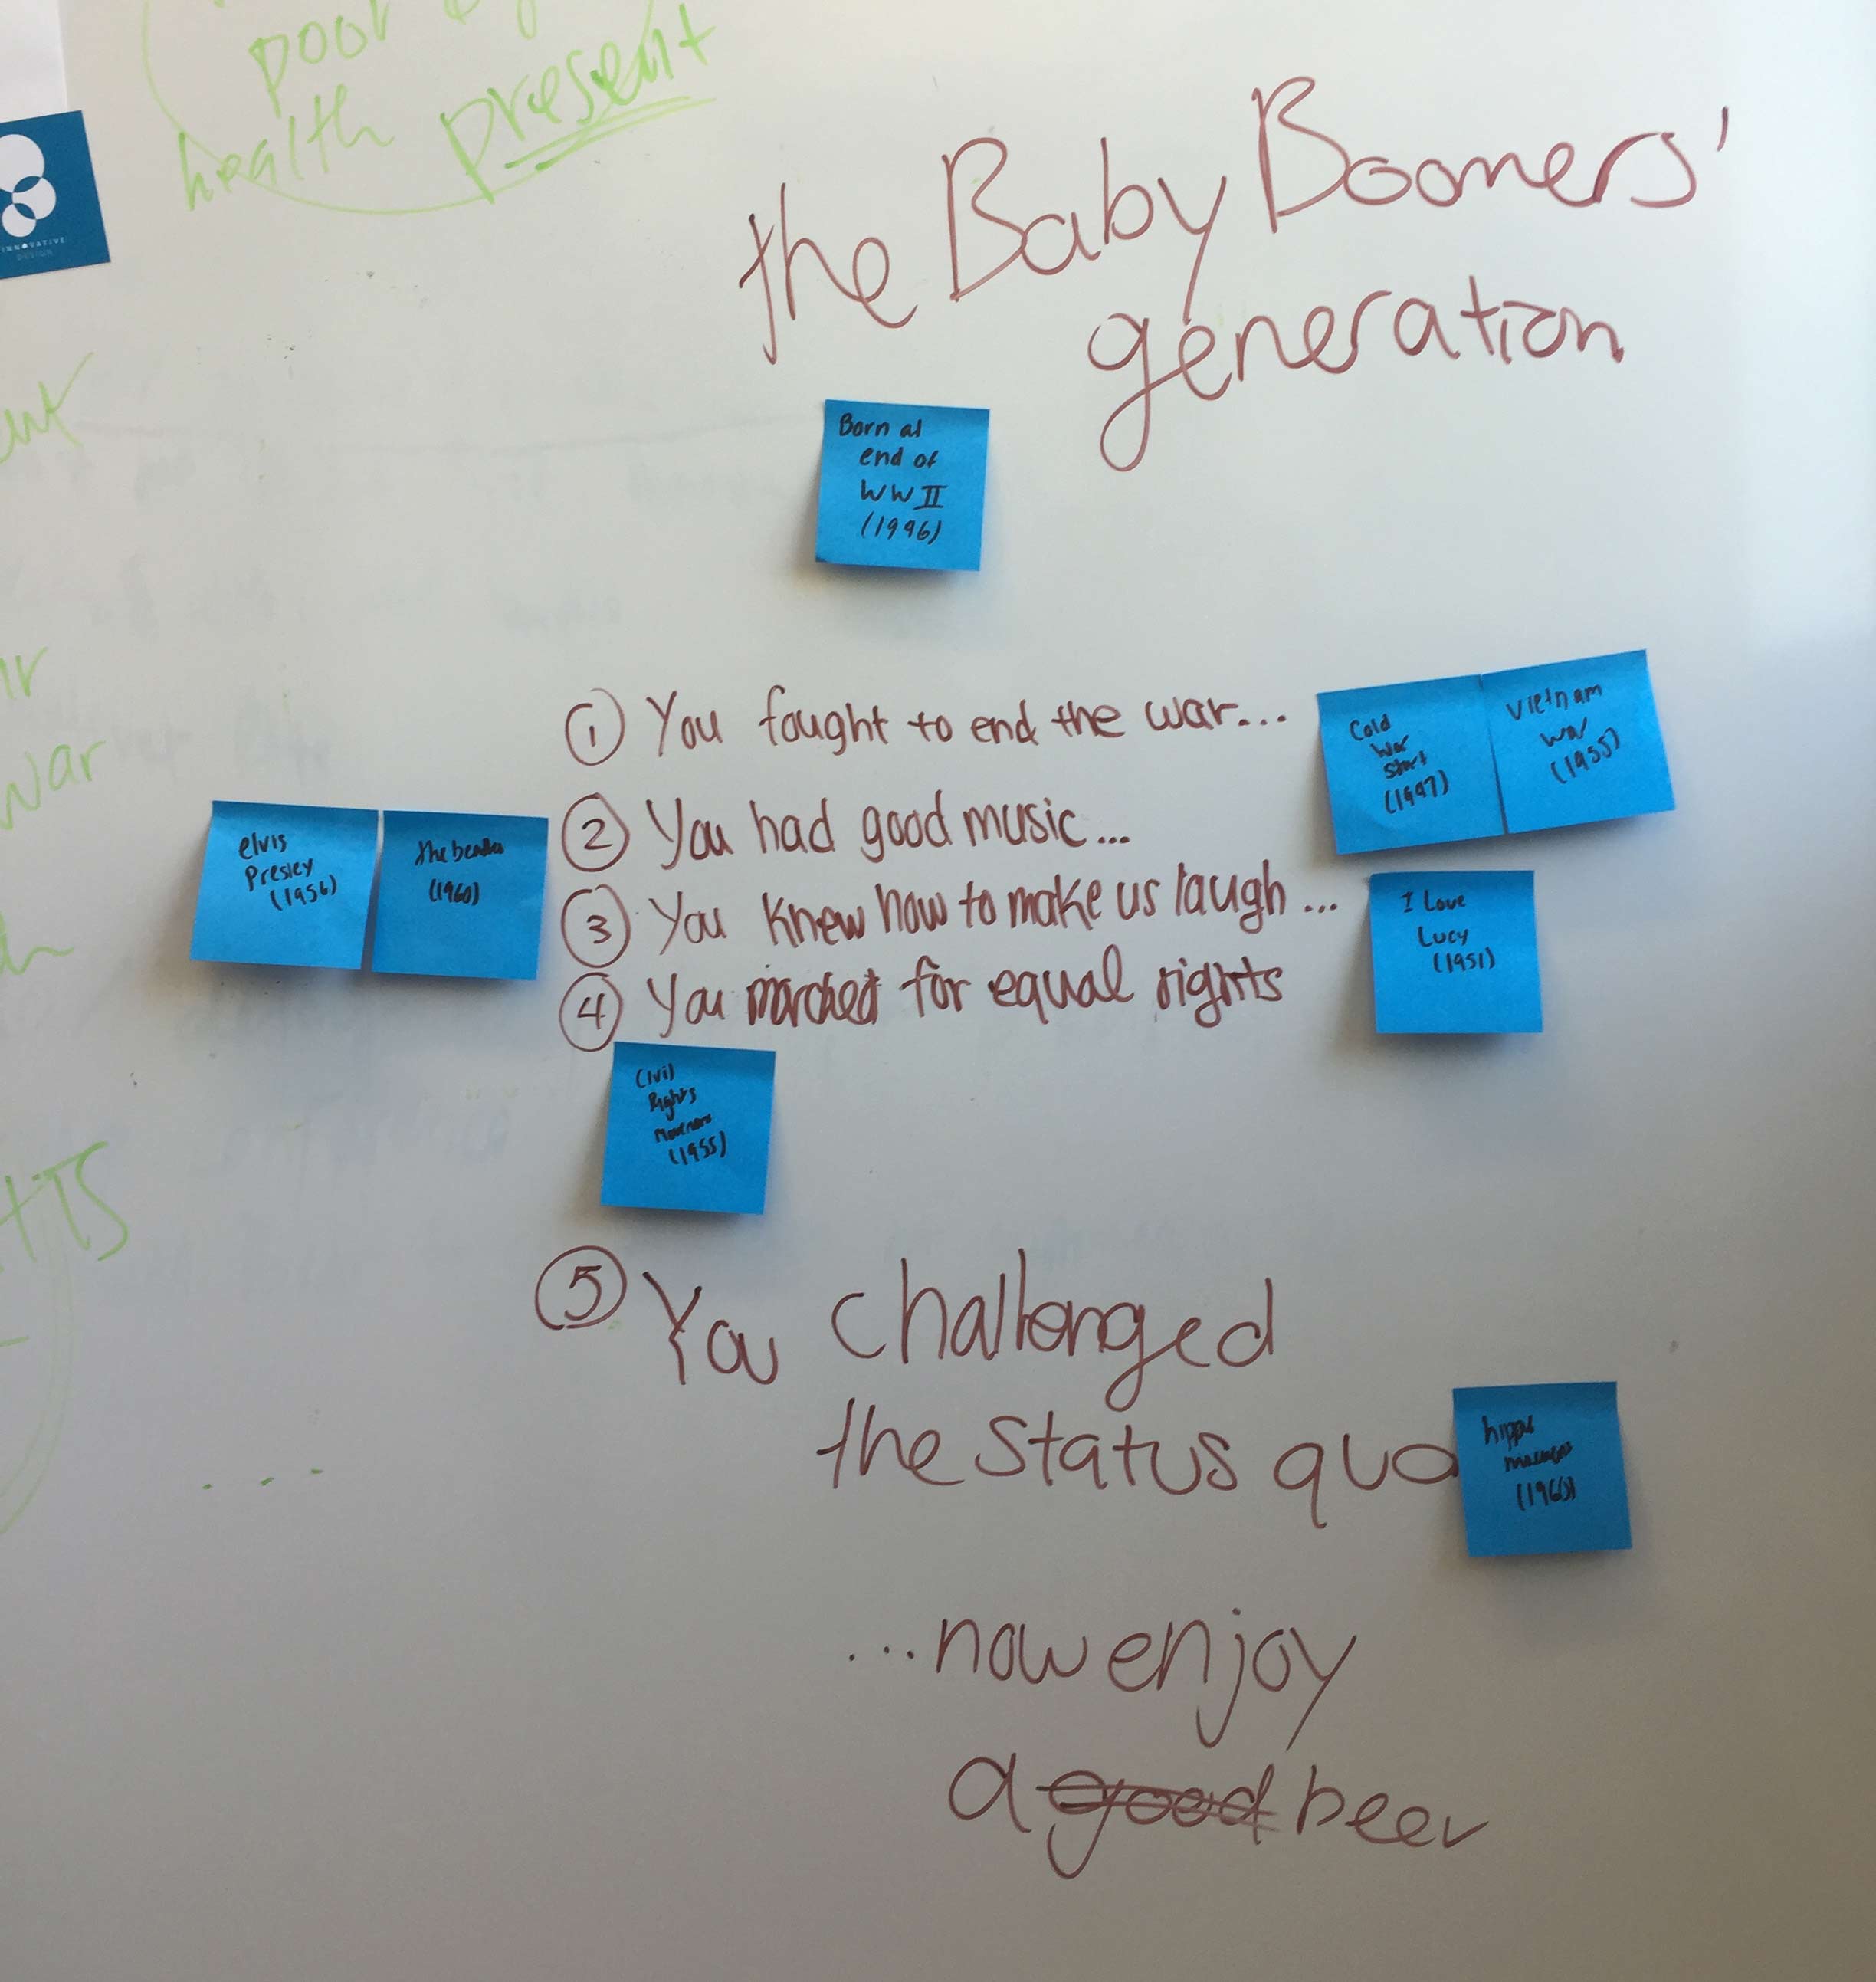 poor
health present
INNOVATIVE
DESIGN
the Baby Boomers'
generation
Born at
end of
WWII
(1946)
① You fought to end the war...
Cold
War
start
(1947)
Vietnam
war
(1955)
elvis
Presley
(1956)
the beatles
(1960)
② You had good music...
③ You knew how to make us laugh...
I Love
Lucy
(1951)
④ You marched for equal rights
Civil
Rights
Movement
(1955)
⑤ You challenged
the status quo
hippie
(1960)
...now enjoy
a good beer
war